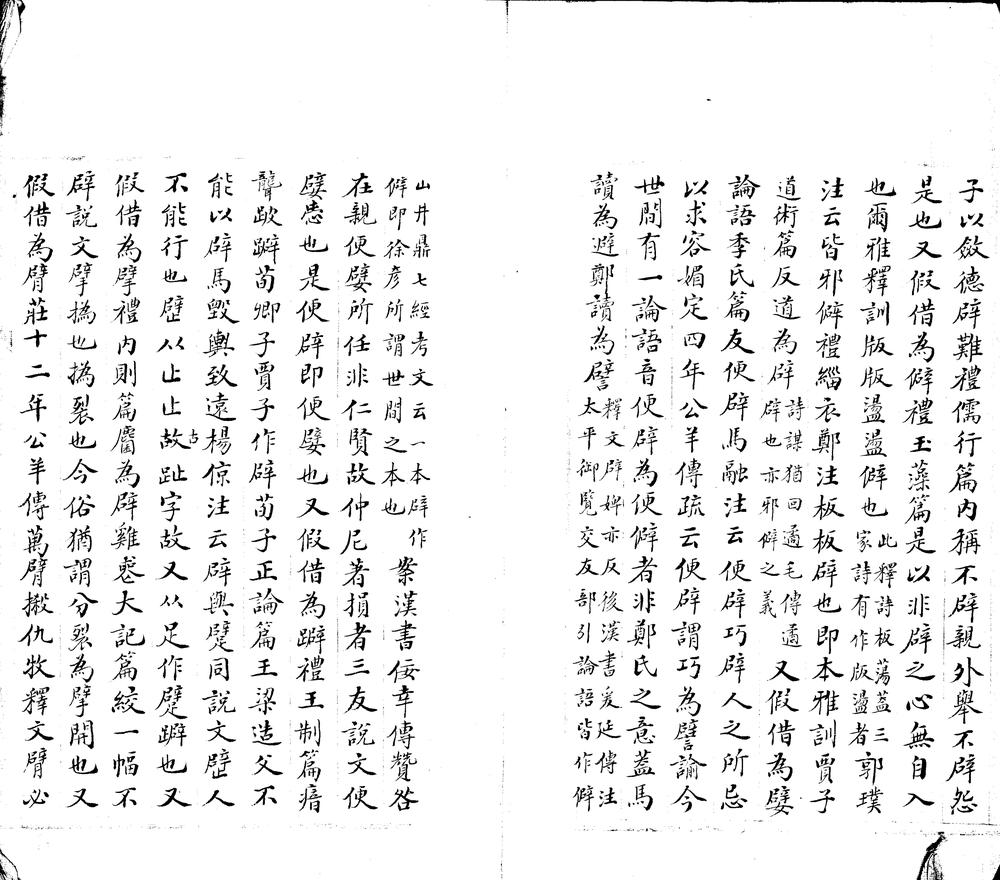 子以斂德辟難禮儒行篇內稱不辟親外舉不辟怨
是也又假借為僻禮玉藻篇是以非辟之心無自入
也爾雅釋訓版版盪盪僻也此釋詩板蕩蓋三家詩有作版盪者郭璞
注云皆邪僻禮緇衣鄭注板板辟也即本雅訓賈子
道術篇反道為辟詩謀猶回遹毛傳遹辟也亦邪僻之義又假借為嬖
論語季氏篇友便辟馬融注云便辟巧辟人之所忌
以求容媚定四年公羊傳疏云便辟謂巧為譬諭今
世間有一論語音便辟為便僻者非鄭氏之意蓋馬
讀為避鄭讀為譬釋文辟婢亦反後漢書爰延傳注太平御覽交友部引論語皆作僻
山井鼎七經考文云一本辟作僻即徐彥所謂世間之本也案漢書佞幸傳贊咎
在親便嬖所任非仁賢故仲尼著損者三友說文便
嬖愻也是便辟即便嬖也又假借為躃禮王制篇瘖
聾跛躃荀卿子賈子作辟荀子正論篇王梁造父不
能以辟馬毀輿致遠楊倞注云辟與躄同說文壁人
不能行也壁从止止古故趾字故又从足作躄躃也又
假借為擘禮內則篇麕為辟雞喪大記篇絞一幅不
辟說文擘撝也撝裂也今俗猶謂分裂為擘開也又
假借為臂莊十二年公羊傳萬臂摋仇牧釋文臂必